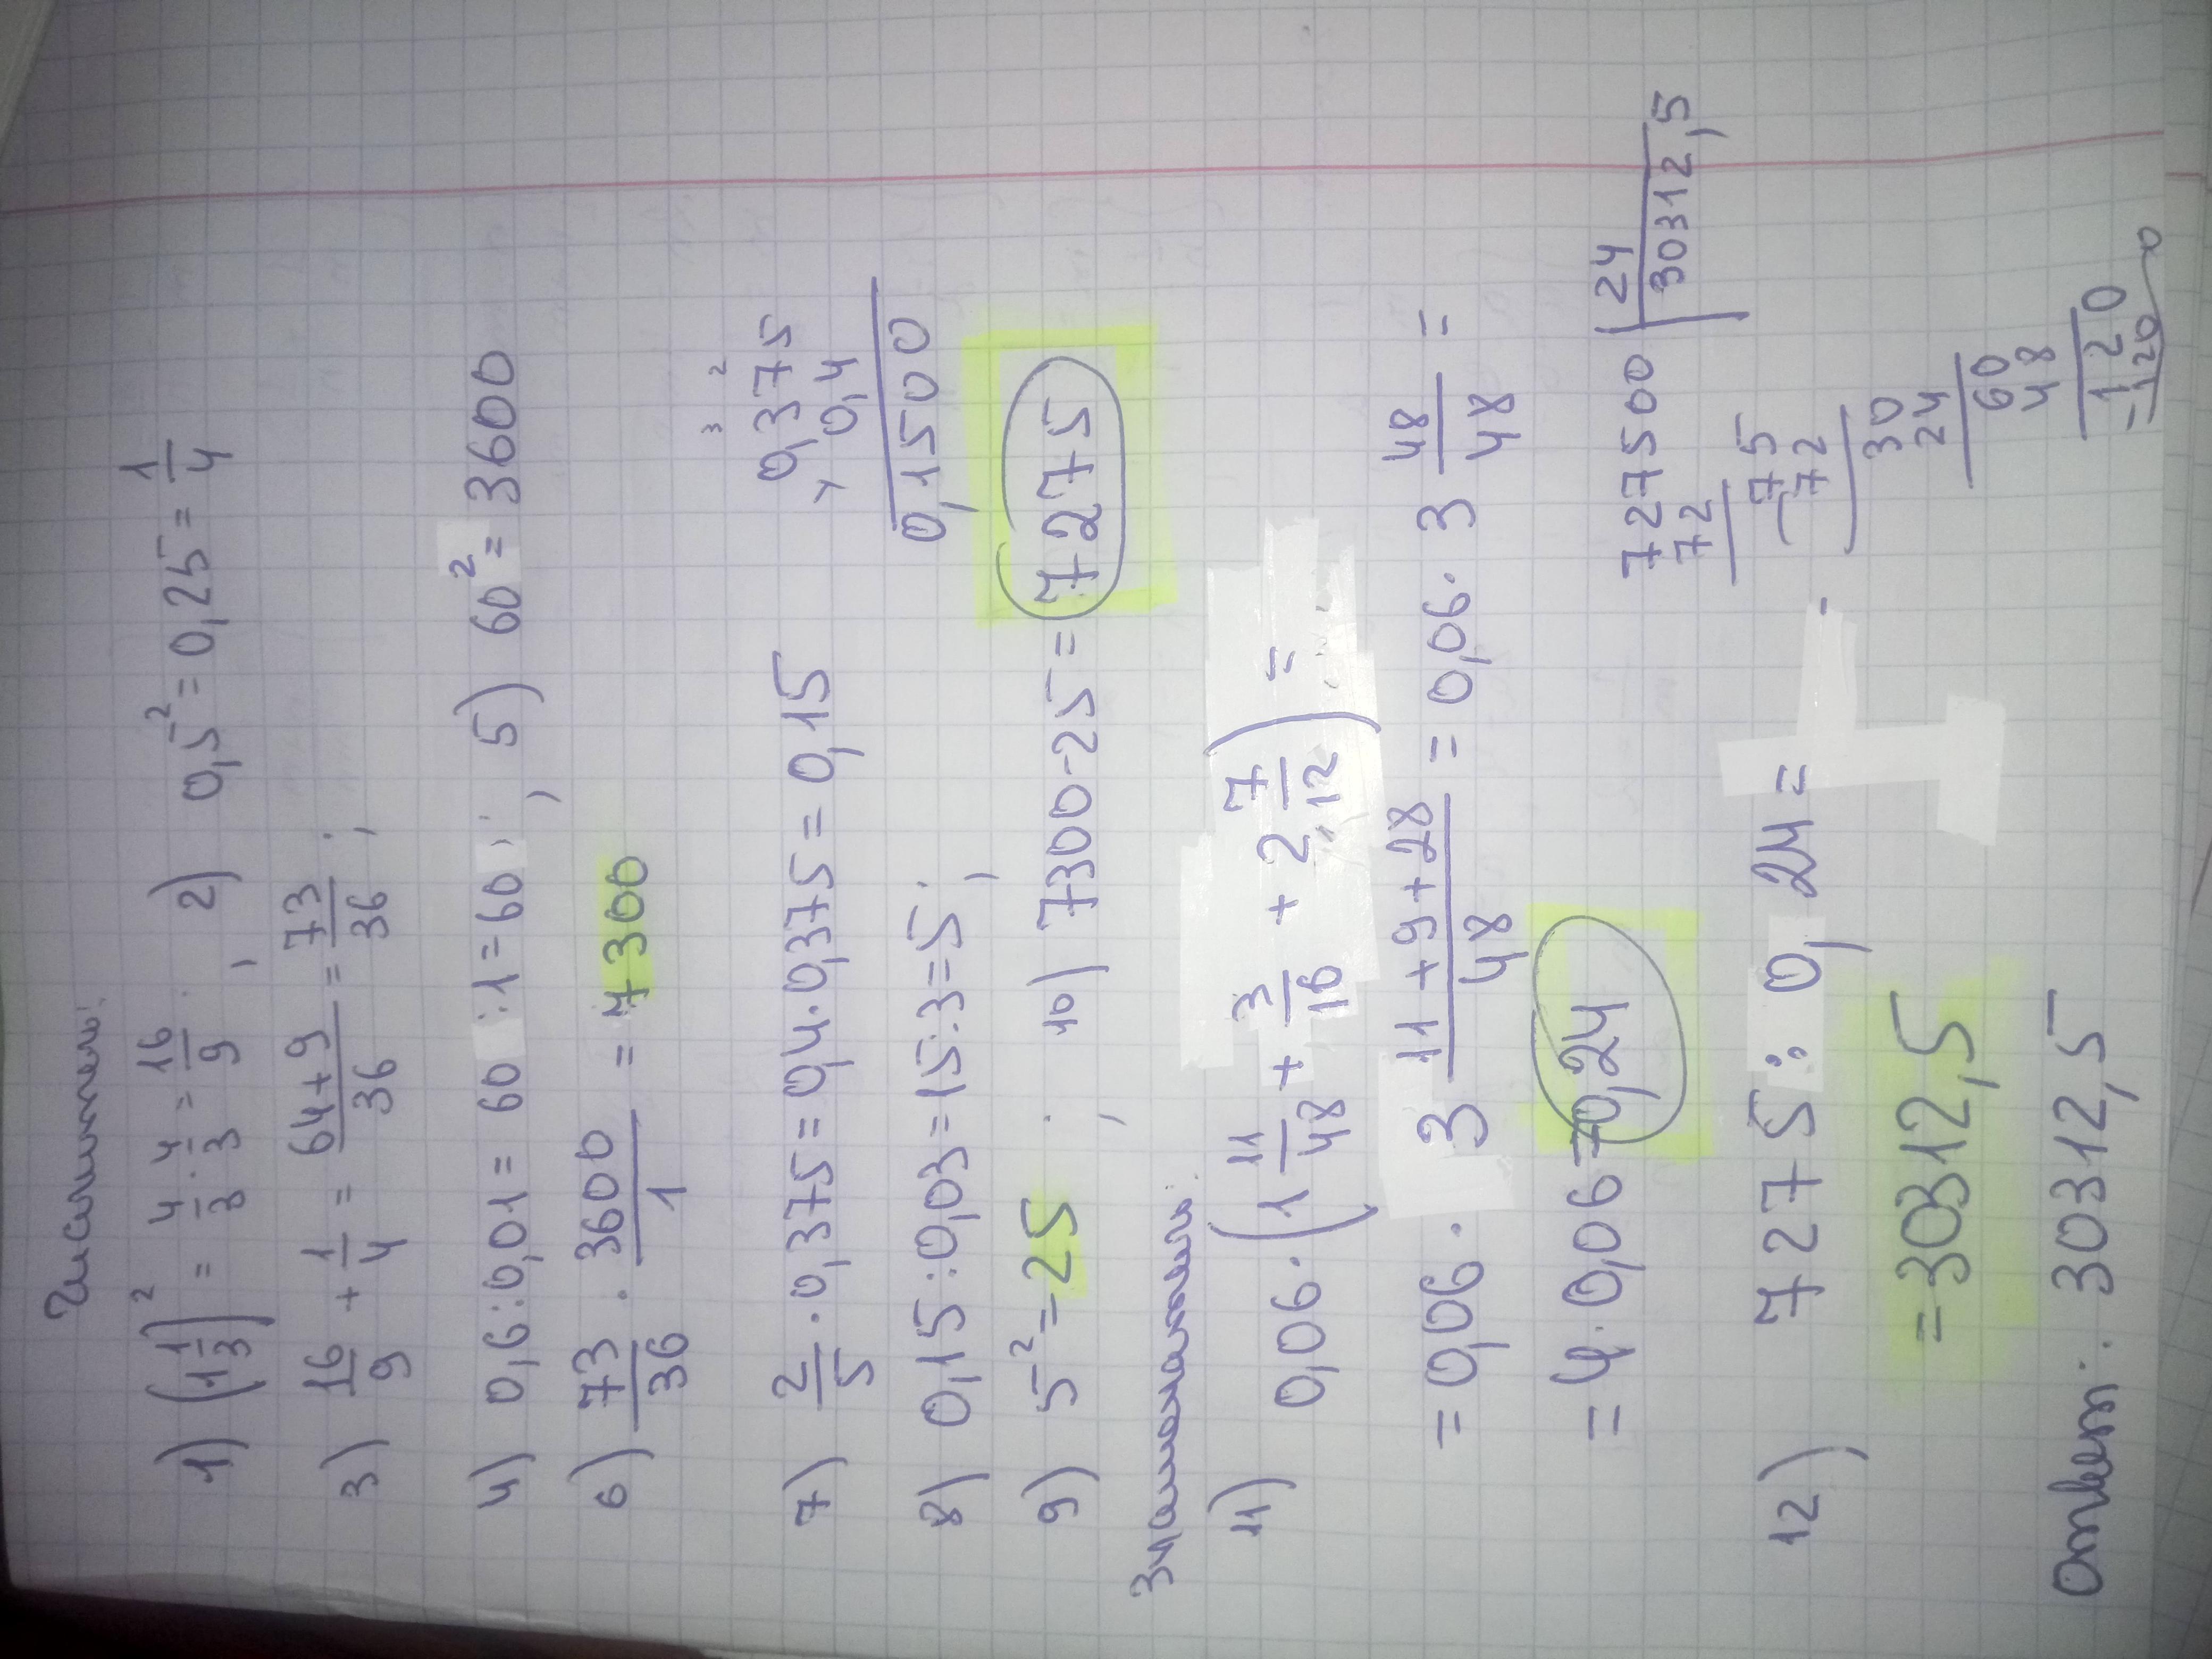 Числитель:
1) (1 1/3)² = 4/3 · 4/3 = 16/9 ; 2) 0,5² = 0,25 = 1/4
3) 16/9 + 1/4 = (64+9)/36 = 73/36 ;
4) 0,6:0,01 = 60 :1=60 ; 5) 60² = 3600
6) 73/36 · 3600/1 = 7300
7) 2/5 · 0,375 = 0,4·0,375 = 0,15
0,375
× 0,4
0,1500
8) 0,15:0,03=15:3=5 ;
9) 5² = 25 ; 10) 7300-25 = 7275
Знаменатель
11) 0,06·(1 11/48 + 3/16 + 2 7/12) =
= 0,06 · 3 (11+9+28)/48 = 0,06 · 3 48/48 =
= 4·0,06 = 0,24
12) 7275 : 0,24 =
= 30312,5
727500 | 24
72 | 30312,5
75
72
30
24
60
48
120
120
0
Ответ: 30312,5